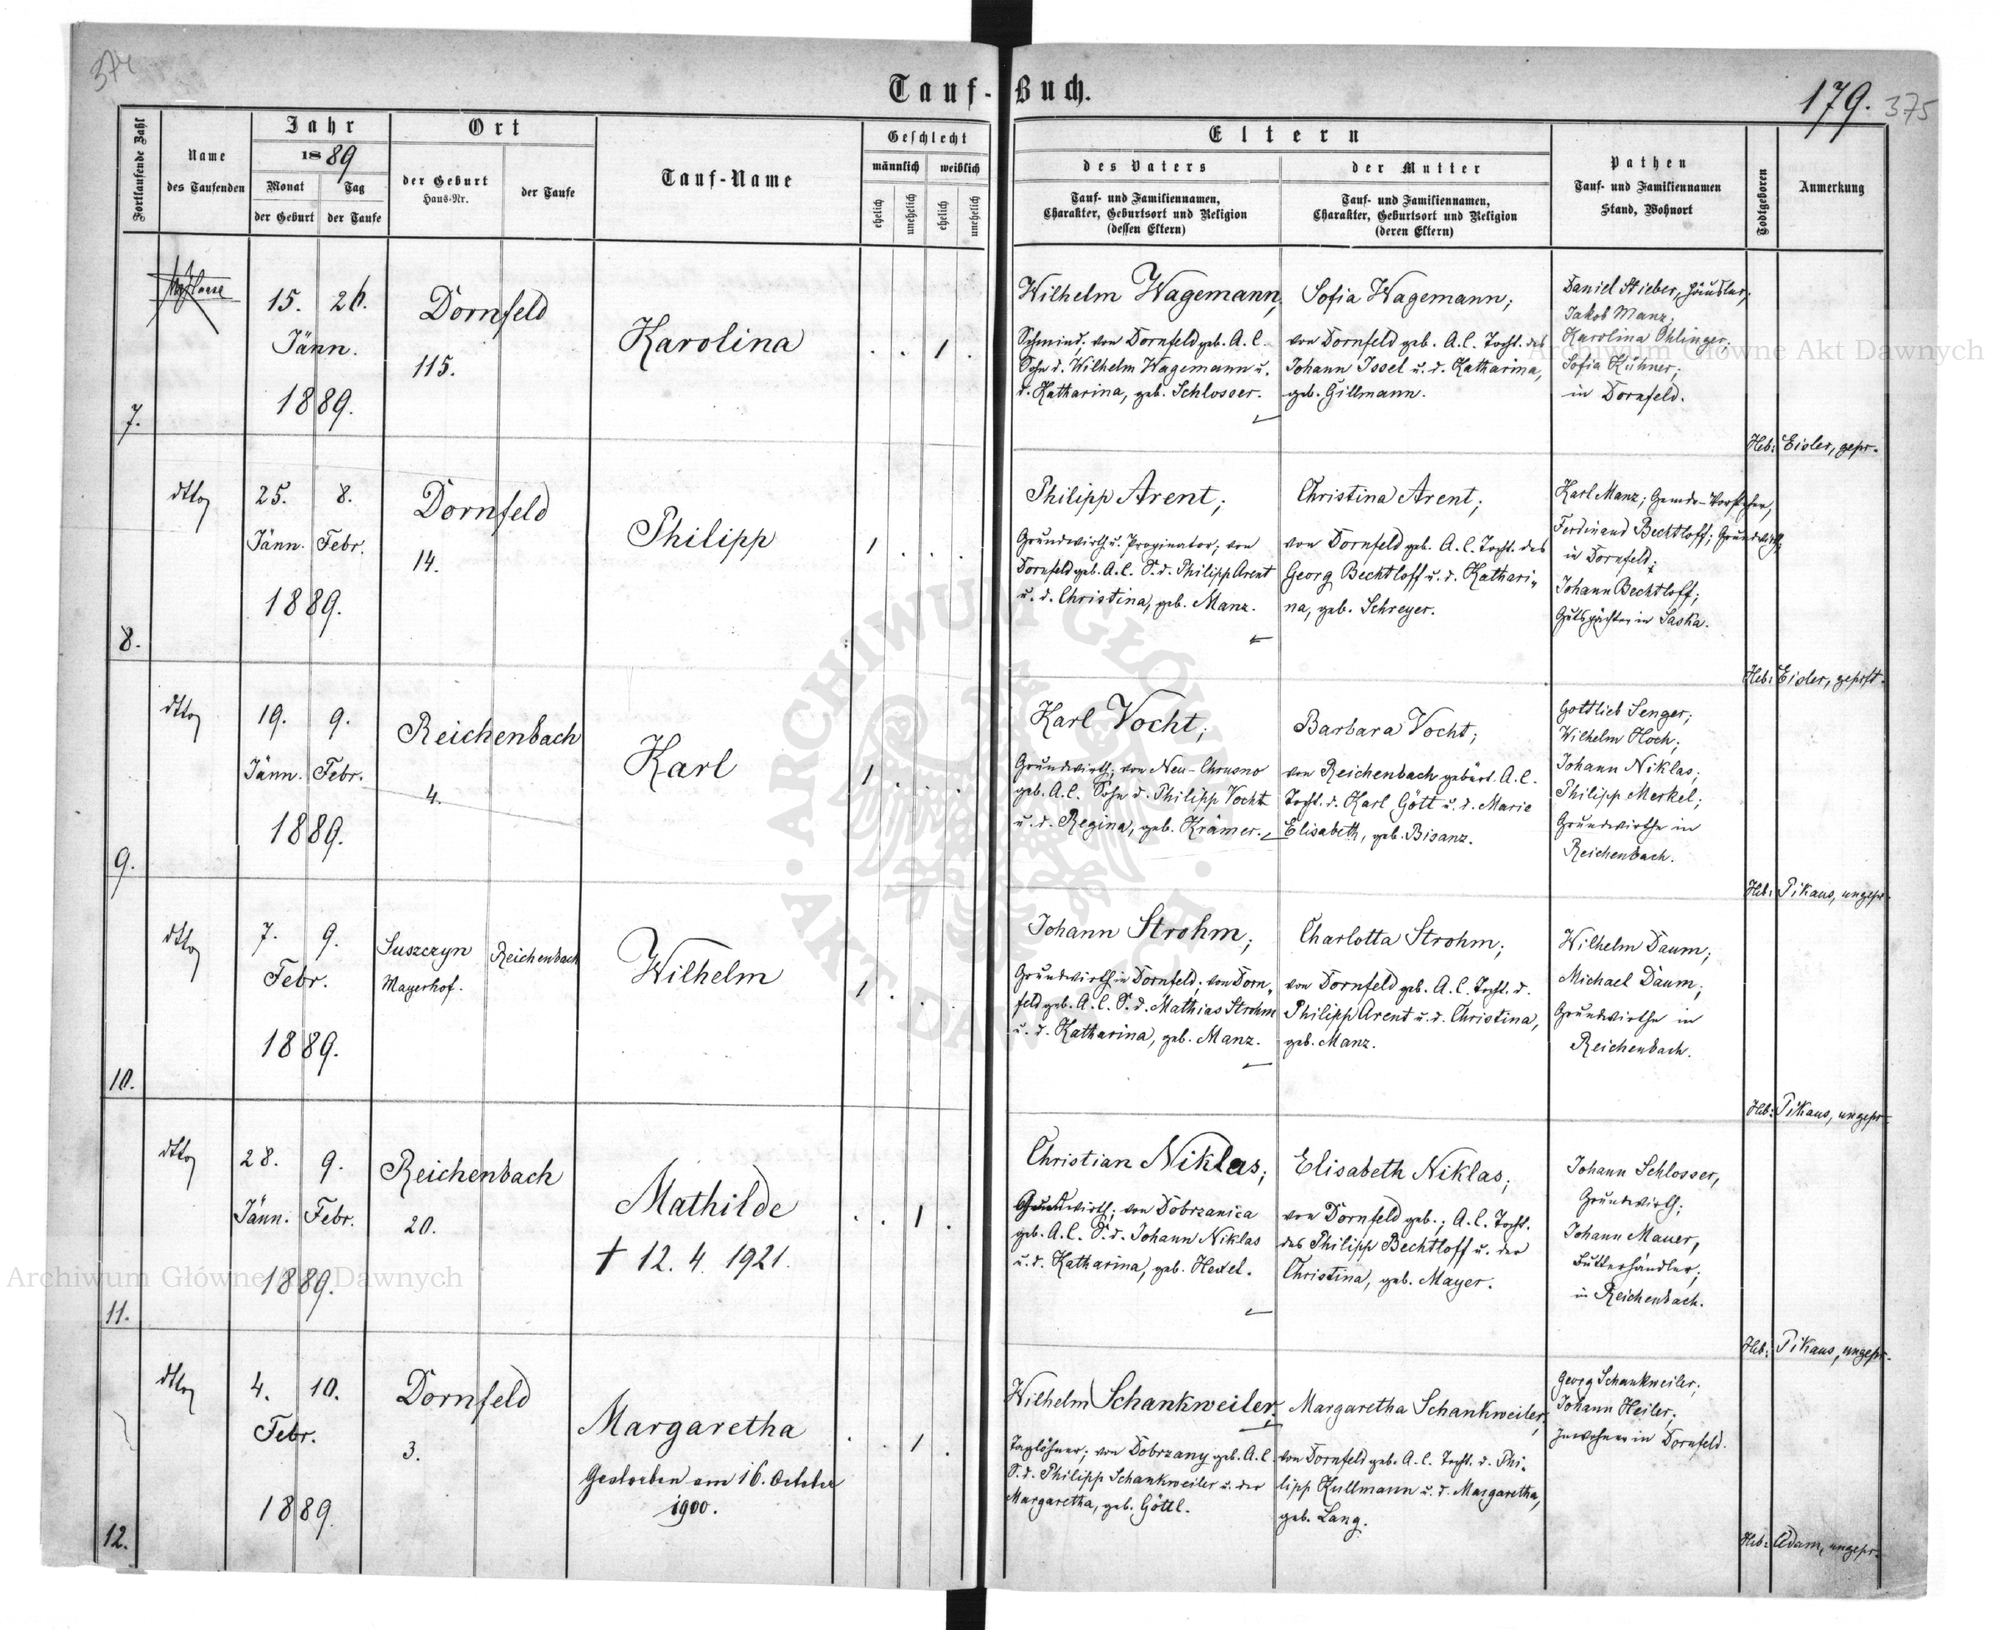 374
Tauf-Buch.
179. 375
Fortlaufende Zahl
Name
des Taufenden
Jahr
1889
Monat
der Geburt
Tag
der Taufe
Ort
der Geburt
Haus-Nr.
der Taufe
Tauf-Name
Geschlecht
männlich
weiblich
ehelich
unehelich
ehelich
unehelich
Eltern
des Vaters
Tauf- und Familiennamen,
Charakter, Geburtsort und Religion
(dessen Eltern)
der Mutter
Tauf- und Familiennamen,
Charakter, Geburtsort und Religion
(deren Eltern)
Pathen
Tauf- und Familiennamen
Stand, Wohnort
Todtgeboren
Anmerkung
7.
15. 26.
Jänn.
1889.
Dornfeld
115.
Karolina
. . 1 .
Wilhelm Wagemann,
Schmied. von Dornfeld geb. A.C.
Sohn d. Wilhelm Wagemann u.
d. Katharina, geb. Schlosser.
Sofia Wagemann;
von Dornfeld geb. A.C. Tocht. des
Johann Issel u. d. Katharina,
geb. Gillmann.
Daniel Stieber, Häusler;
Jakob Manz;
Karolina Ohlinger;
Sofia Kühner;
in Dornfeld.
Heb: Eisler, gepr.
8.
dtto
25. 8.
Jänn. Febr.
1889.
Dornfeld
14.
Philipp
1 . . .
Philipp Arent;
Grundwirth u. Propinator; von
Dornfeld geb. A.C. S. d. Philipp Arent
u. d. Christina, geb. Manz.
Christina Arent;
von Dornfeld geb. A.C. Tocht. des
Georg Bechtloff u. d. Kathari-
na, geb. Schreyer.
Karl Manz; Gemde-Vorsteher,
Ferdinand Bechtloff; Grundwirth;
in Dornfeld;
Johann Bechtloff;
Gutspächter in Saska.
Heb: Eisler, geprft.
9.
dtto
19. 9.
Jänn. Febr.
1889.
Reichenbach
4.
Karl
1 . . .
Karl Vocht;
Grundwirth; von Neu-Chrusno
geb. A.C. Sohn d. Philipp Vocht
u. d. Regina, geb. Krämer.
Barbara Vocht;
von Reichenbach gebürt. A.C.
Tocht. d. Karl Gött u. d. Marie
Elisabeth, geb. Bisanz.
Gottlieb Senger;
Wilhelm Hoch;
Johann Niklas;
Philipp Merkel;
Grundwirthe in
Reichenbach.
Heb: Pikaus, ungepr.
10.
dtto
7. 9.
Febr.
1889.
Suszczyn
Mayerhof.
Reichenbach
Wilhelm
1 . . .
Johann Strohm;
Grundwirth in Dornfeld; von Dorn-
feld geb. A.C. S. d. Mathias Strohm
u. d. Katharina, geb. Manz.
Charlotta Strohm;
von Dornfeld geb. A.C. Tocht. d.
Philipp Arent u. d. Christina,
geb. Manz.
Wilhelm Daum;
Michael Daum;
Grundwirthe in
Reichenbach.
Heb: Pikaus, ungepr.
11.
dtto
28. 9.
Jänn. Febr.
1889.
Reichenbach
20.
Mathilde
† 12. 4. 1921.
. . 1 .
Christian Niklas;
Grundwirth; von Dobrzanica
geb. A.C. S. d. Johann Niklas
u. d. Katharina, geb. Hexel.
Elisabeth Niklas;
von Dornfeld geb.; A.C. Tocht.
des Philipp Bechtloff u. der
Christina, geb. Mayer.
Johann Schlosser,
Grundwirth;
Johann Mauer,
Butterhändler;
in Reichenbach.
Heb: Pikaus, ungepr.
12.
dtto
4. 10.
Febr.
1889.
Dornfeld
3.
Margaretha
Gestorben am 16. October
1900.
. . 1 .
Wilhelm Schankweiler;
Taglöhner; von Dobrzany geb. A.C.
S. d. Philipp Schankweiler u. der
Margaretha, geb. Göttl.
Margaretha Schankweiler,
von Dornfeld geb. A.C. Tocht. d. Phi-
lipp Kullmann u. d. Margaretha,
geb. Lang.
Georg Schankweiler;
Johann Heiler;
Inwohner in Dornfeld.
Heb: Adam, ungepr.
Archiwum Główne Akt Dawnych
Archiwum Główne Akt Dawnych
ARCHIWUM GŁÓWNE AKT DAWNYCH